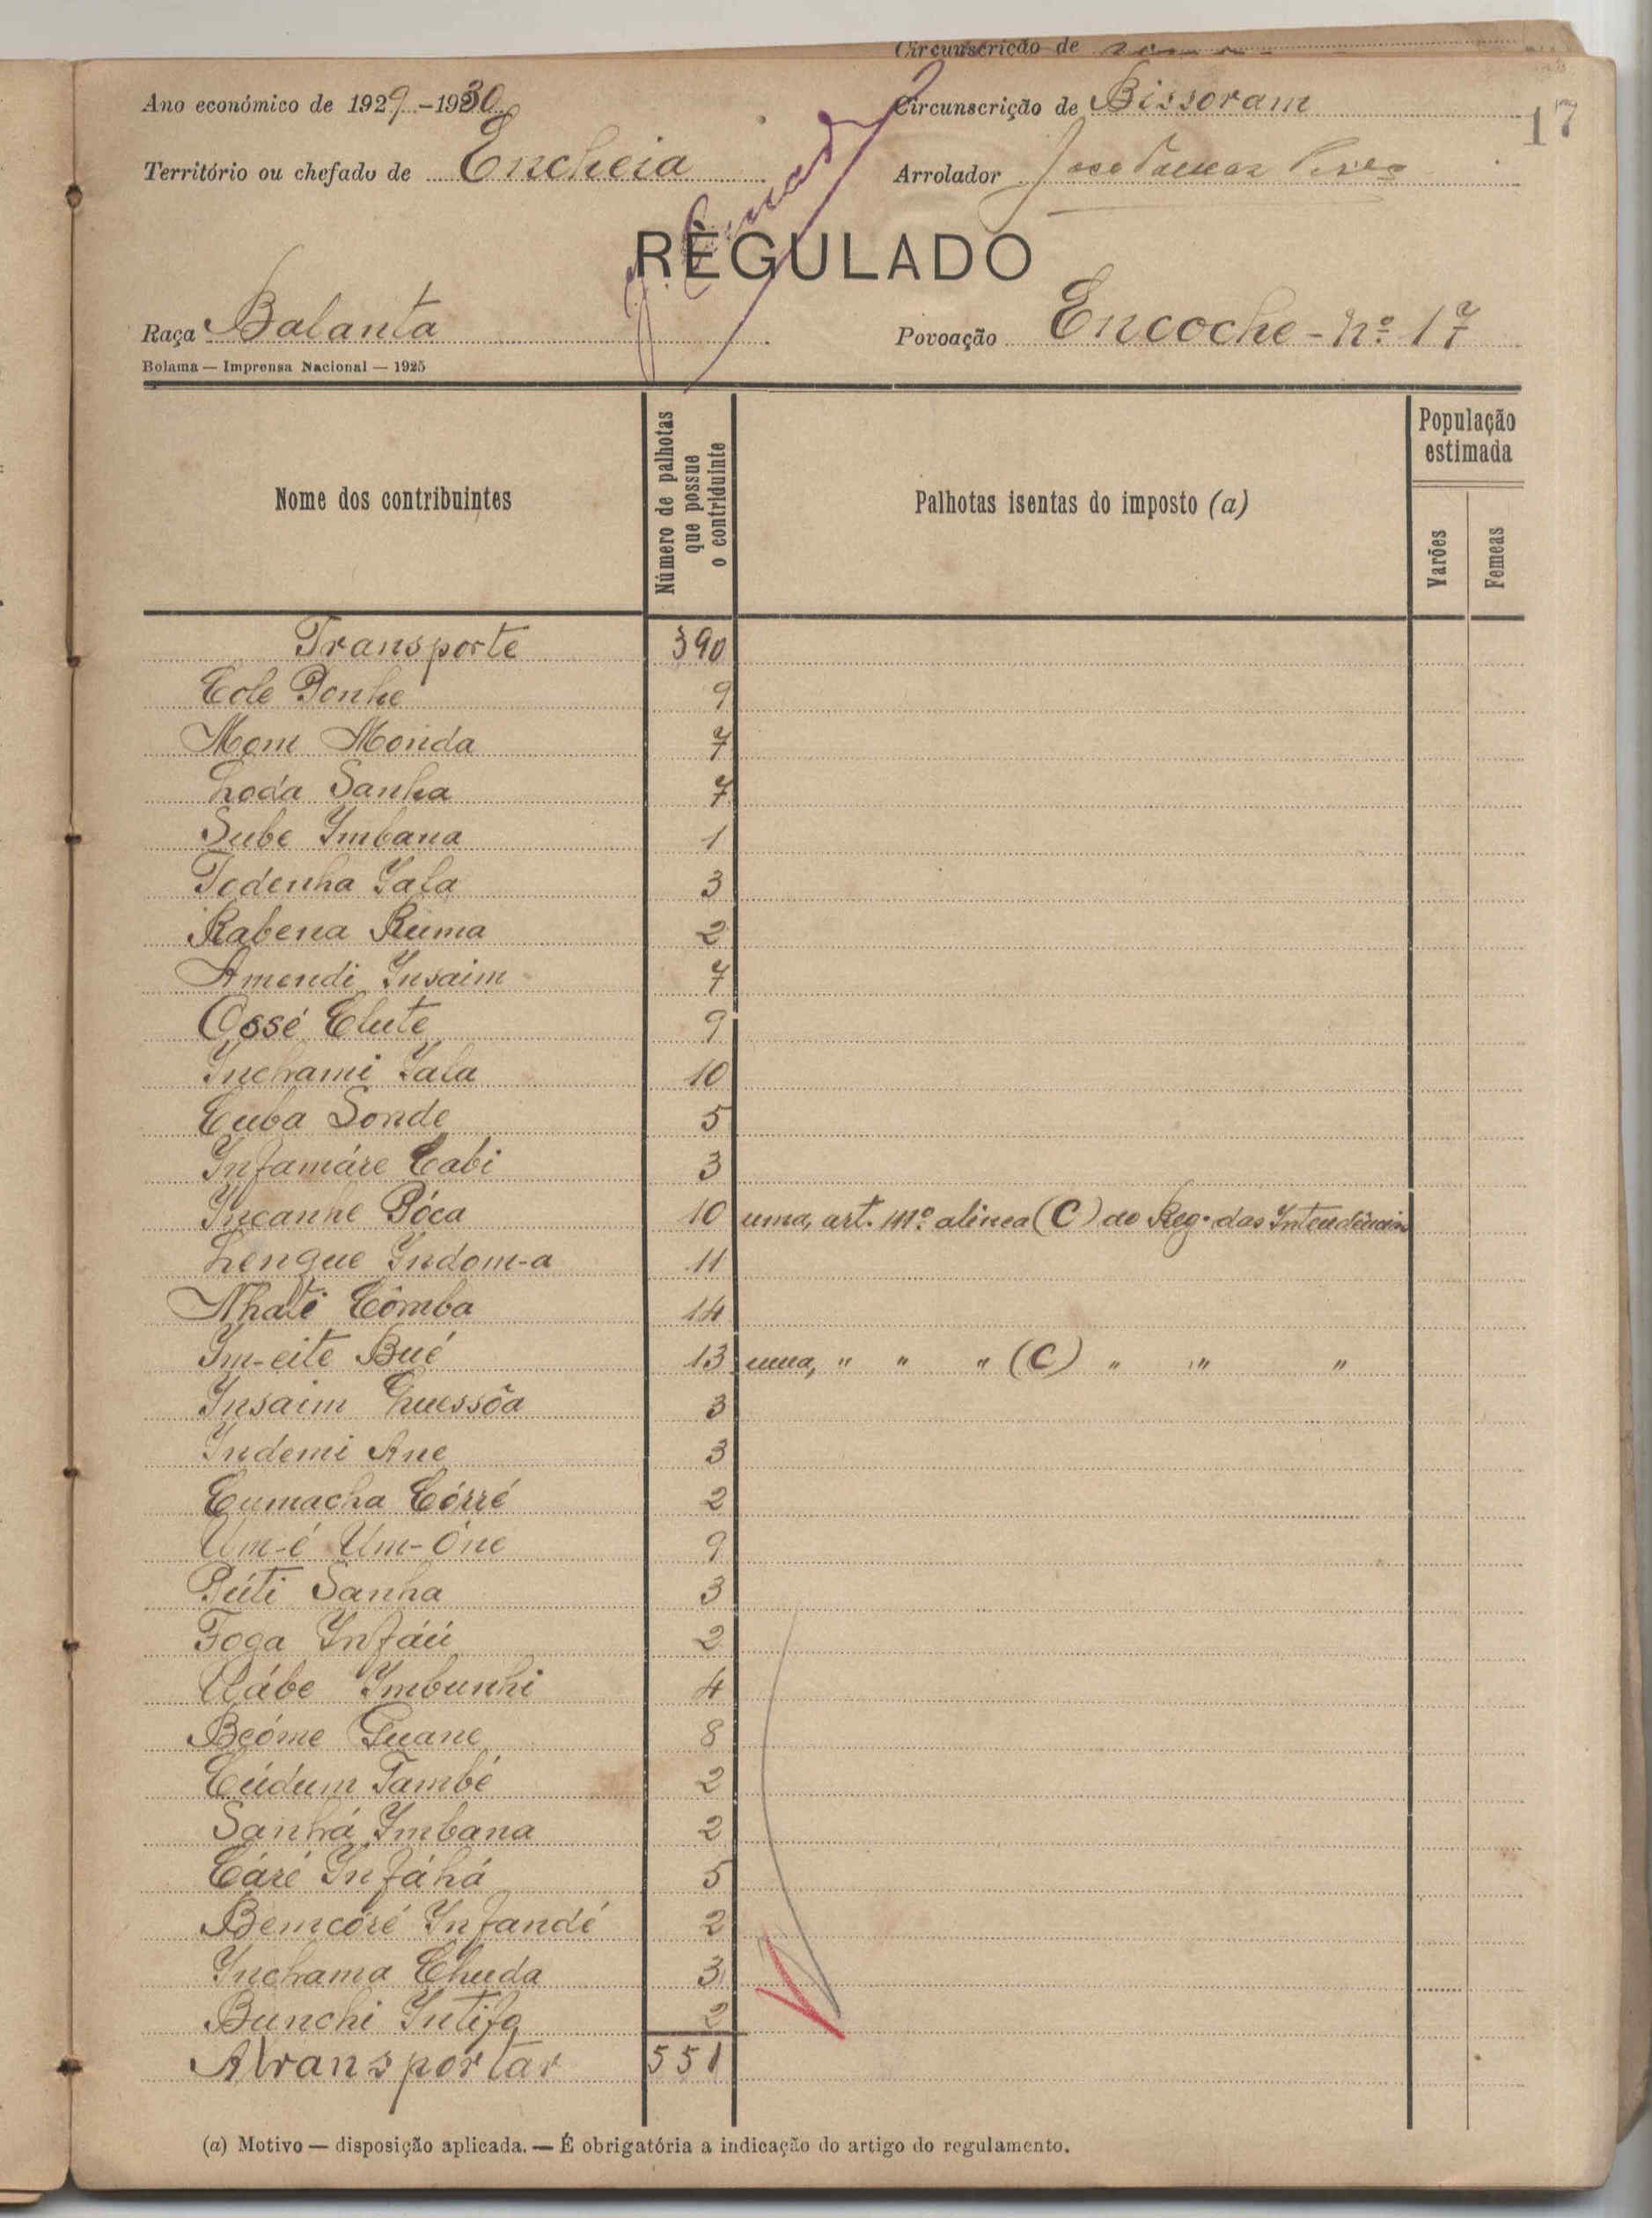 Circunscrição de
Ano económico de 1929-1930
Circunscrição de Bissoram
17
Território ou chefado de Encheia
Arrolador José
REGULADO
Raça Balanta
Povoação Encoche - nº 17
Bolama — Imprensa Nacional — 1925
Nome dos contribuintes
Número de palhotas que possue o contriduinte
Palhotas isentas do imposto (a)
População estimada
Varões
Femeas
Transporte 390
Cole Donhe 9
Mom Monda 7
Loda Sanha 7
Sube Imbana 1
Todenha Iala 3
Rabena Ruma 2
Amendi Insaim 7
Ossé Clute 9
Inchami Iala 10
Cuba Sonde 5
Infamáre Cabi 3
Incanhe Póca 10 uma, art. 141º alinea (C) do Reg. das Intendências
Lengue Indom-a 11
Nhati Cômba 14
Im-eite Bué 13 uma, " " " (C) " " "
Insaim 3
Indemi Ane 3
Cumacha Córré 2
Um-é Um-Óne 9
Púti Sanha 3
Foga Infáú 2
Uábe Imbunhi 4
Beóme Guane 8
Cúdum També 2
Sanhá Imbana 2
Cáré Infáhá 5
Bemcóré Infandé 2
Inchama Chuda 3
Bunchi Intifa 2
Atransportar 551
(a) Motivo — disposição aplicada. — É obrigatória a indicação do artigo do regulamento.